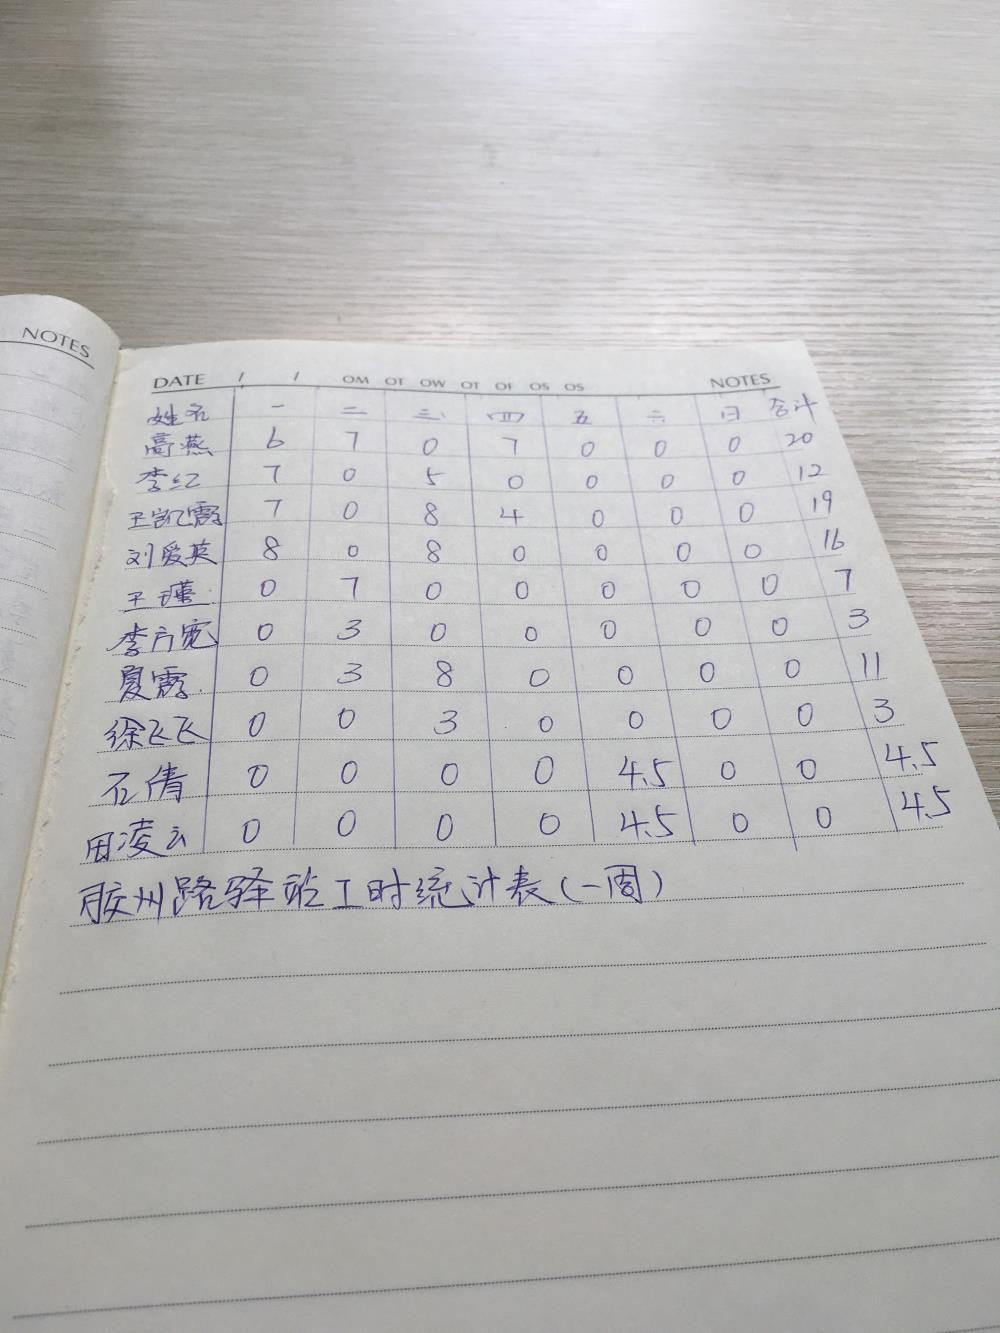 NOTES
DATE / / OM OT OW OT OF OS OS NOTES
姓名 一 二 三 四 五 六 日 合计
高燕 6 7 0 7 0 0 0 20
李红 7 0 5 0 0 0 0 12
王凯霞 7 0 8 4 0 0 0 19
刘爱英 8 0 8 0 0 0 0 16
王瑾 0 7 0 0 0 0 0 7
李方宽 0 3 0 0 0 0 0 3
夏霞 0 3 8 0 0 0 0 11
徐飞飞 0 0 3 0 0 0 0 3
石倩 0 0 0 0 4.5 0 0 4.5
田凌云 0 0 0 0 4.5 0 0 4.5
胶州路驿站工时统计表(一周)